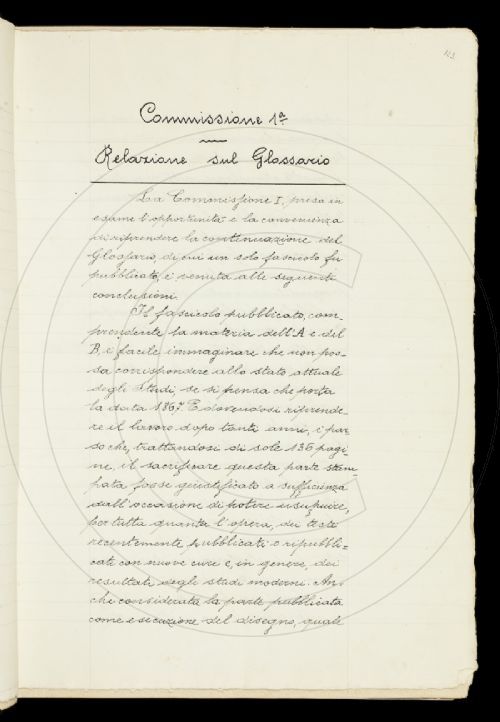 Commissione 1ª
Relazione sul Glossario
La Commissione I, presa in
esame l'opportunità e la convenienza
di riprendere la continuazione del
Glossario, di cui un solo fascicolo fu
pubblicato, è venuta alle seguenti
conclusioni.
Il fascicolo pubblicato, com-
prendente la materia dell'A e del
B, è facile immaginare che non pos-
sa corrispondere allo stato attuale
degli Studi, se si pensa che porta
la data 1867. E dovendosi riprende-
re il lavoro dopo tanti anni, è par-
so che, trattandosi di sole 136 pagi-
ne, il sacrificare questa parte stam-
pata fosse giustificato a sufficienza
dall'occasione di potere usufruire,
per tutta quanta l'opera, dei testi
recentemente pubblicati o ripubbli-
cati con nuove cure e, in genere, dei
resultati degli studi moderni. An-
che considerata la parte pubblicata
come esecuzione del disegno, quale